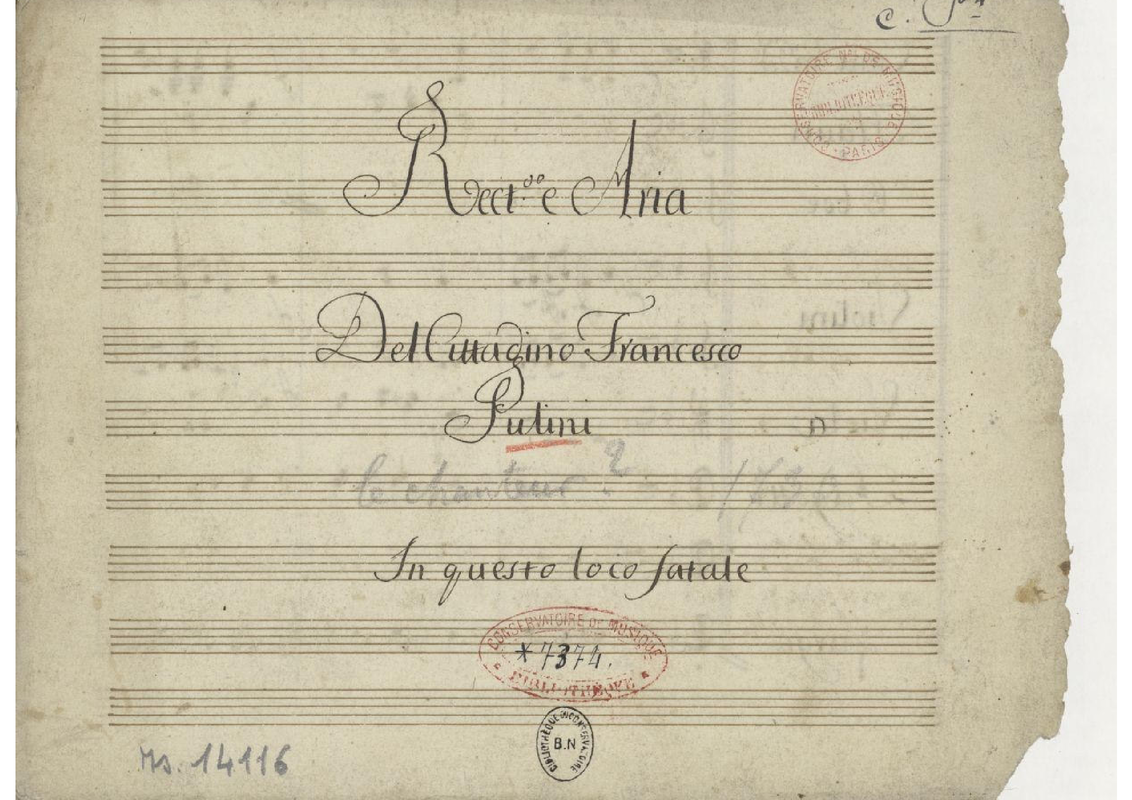 CONSERVATOIRE NAL DE MUSIQUE
BIBLIOTHÈQUE
PARIS
Rect.vo e Aria
Del Cittadino Francesco
Putini
le chanteur?
In questo loco fatale
CONSERVATOIRE DE MUSIQUE
*7374.
BIBLIOTHÈQUE
BIBLIOTHÈQUE DU CONSERVATOIRE
B.N
Ms. 14116